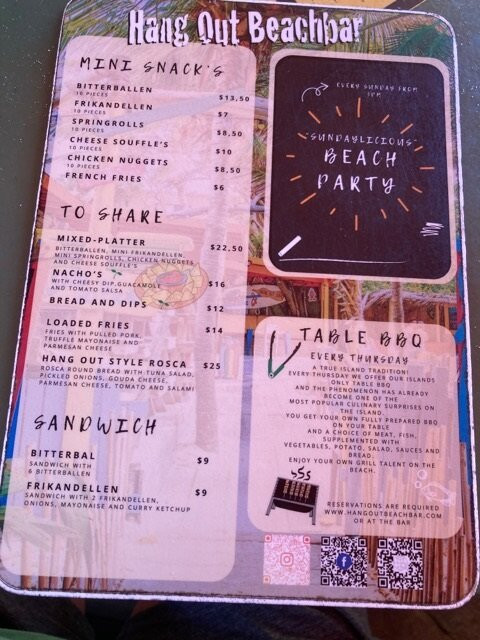 Hang Out Beachbar
MINI SNACK'S
BITTERBALLEN $13,50
10 PIECES
FRIKANDELLEN $7
10 PIECES
SPRINGROLLS $8,50
10 PIECES
CHEESE SOUFFLE'S $10
10 PIECES
CHICKEN NUGGETS $8,50
10 PIECES
FRENCH FRIES $6
TO SHARE
MIXED-PLATTER $22,50
BITTERBALLEN, MINI FRIKANDELLEN,
MINI SPRINGROLLS, CHICKEN NUGGETS
AND CHEESE SOUFFLE'S
NACHO'S $16
WITH CHEESY DIP, GUACAMOLE
AND TOMATO SALSA
BREAD AND DIPS $12
LOADED FRIES $14
FRIES WITH PULLED PORK,
TRUFFLE MAYONAISE AND
PARMESAN CHEESE
HANG OUT STYLE ROSCA $25
ROSCA ROUND BREAD WITH TUNA SALAD,
PICKLED ONIONS, GOUDA CHEESE,
PARMESAN CHEESE, TOMATO AND SALAMI
SANDWICH
BITTERBAL $9
SANDWICH WITH
6 BITTERBALLEN
FRIKANDELLEN $9
SANDWICH WITH 2 FRIKANDELLEN,
ONIONS, MAYONAISE AND CURRY KETCHUP
EVERY SUNDAY FROM
"SUNDAYLICIOUS"
BEACH
PARTY
TABLE BBQ
EVERY THURSDAY
A TRUE ISLAND TRADITION!
EVERY THURSDAY WE OFFER OUR ISLANDS
ONLY TABLE BBQ
AND THE PHENOMENON HAS ALREADY
BECOME ONE OF THE
MOST POPULAR CULINARY SURPRISES ON
THE ISLAND.
YOU GET YOUR OWN FULLY PREPARED BBQ
ON YOUR TABLE
AND A CHOICE OF MEAT, FISH,
SUPPLEMENTED WITH
VEGETABLES, POTATO, SALAD, SAUCES AND
BREAD.
ENJOY YOUR OWN GRILL TALENT ON THE
BEACH.
RESERVATIONS ARE REQUIRED
WWW.HANGOUTBEACHBAR.COM
OR AT THE BAR